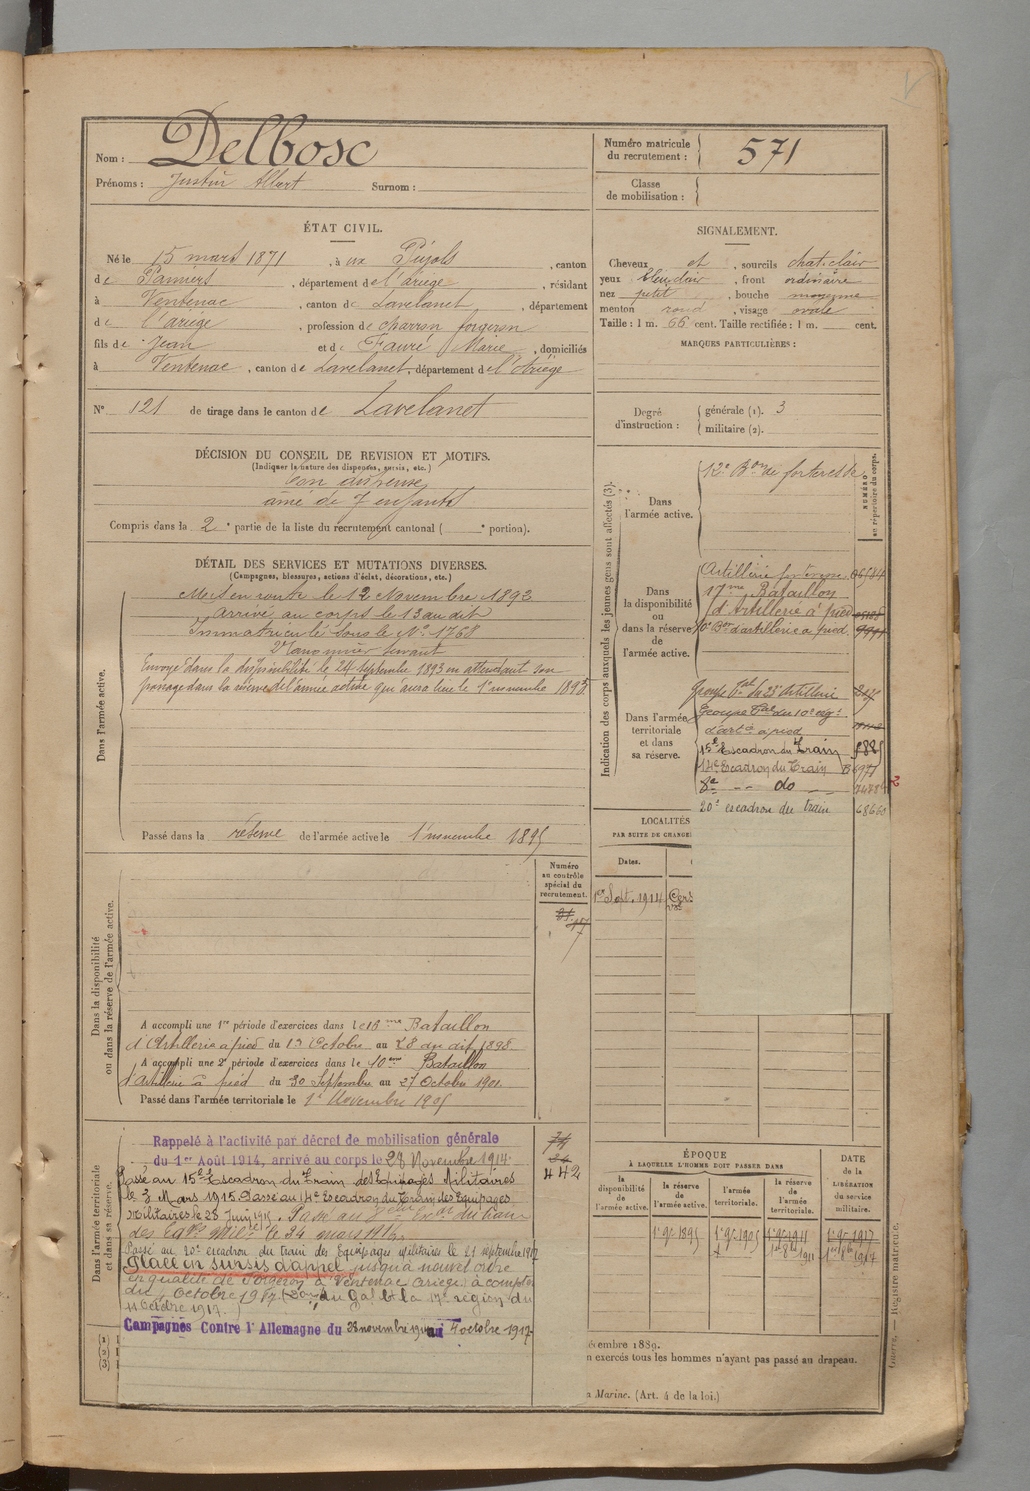 Nom : Delbosc
Prénoms : Justin Albert Surnom :
Numéro matricule du recrutement : 571
Classe de mobilisation :
ÉTAT CIVIL.
Né le 15 mars 1871, à ux Pujols, canton
de Pamiers, département de l'Ariège, résidant
à Ventenac, canton de Lavelanet, département
de l'Ariège, profession de charron forgeron
fils de Jean et de Fauré Marie, domiciliés
à Ventenac, canton de Lavelanet, département de l'Ariège
N° 121 de tirage dans le canton de Lavelanet
SIGNALEMENT.
Cheveux et, sourcils chat. clair
yeux bleu clair, front ordinaire
nez petit, bouche moyenne
menton rond, visage ovale
Taille : 1 m. 66 cent. Taille rectifiée : 1 m. cent.
MARQUES PARTICULIÈRES :
Degré d'instruction : générale (1). 3
militaire (2).
DÉCISION DU CONSEIL DE REVISION ET MOTIFS.
(Indiquer la nature des dispenses, sursis, etc.)
bon
aîné de 7 enfants
Compris dans la 2e partie de la liste du recrutement cantonal ( e portion).
DÉTAIL DES SERVICES ET MUTATIONS DIVERSES.
(Campagnes, blessures, actions d'éclat, décorations, etc.)
Dans l'armée active.
Mis en route le 12 Novembre 1892
arrivé au corps le 13 au dit
Immatriculé sous le N° 1768
2e canonnier servant
Envoyé dans la disponibilité le 24 septembre 1893 en attendant son
passage dans la réserve de l'armée active qui aura lieu le 1er novembre 1895
Passé dans la réserve de l'armée active le 1er novembre 1895
Indication des corps auxquels les jeunes gens sont affectés (3).
NUMÉRO au répertoire du corps.
Dans l'armée active.
12e Bon de forteresse
Dans la disponibilité ou dans la réserve de l'armée active.
Artillerie forteresse
17me Bataillon
d'Artillerie à pied
10e Bon d'artillerie à pied
Dans l'armée territoriale et dans sa réserve.
Groupe Tal du 23e artillerie
Groupe Tal du 10e rég.t
d'arte à pied
15e Escadron du Train
14e Escadron du Train
8e -- do --
20e escadron du train 68660
LOCALITÉS
PAR SUITE DE CHANGE
Dates.
1er Sept. 1914
Numéro au contrôle spécial du recrutement.
Dans la disponibilité ou dans la réserve de l'armée active.
A accompli une 1re période d'exercices dans le 10me Bataillon
d'Artillerie à pied du 13 Octobre au 28 du dit 1898
A accompli une 2e période d'exercices dans le 10me Bataillon
d'artillerie à pied du 30 Septembre au 27 Octobre 1901
Passé dans l'armée territoriale le 1er Novembre 1905
Dans l'armée territoriale et dans sa réserve.
Rappelé à l'activité par décret de mobilisation générale
du 1er Août 1914, arrivé au corps le 28 Novembre 1914.
442
Passé au 15e Escadron du Train des Equipages Militaires
le 3 Mars 1915. Passé au 14e Escadron du Train des Equipages
Militaires le 28 Juin 1915. Passé au 8eme Eron du train
des Eqges Milres le 24 mars 1916.
Passé au 20e escadron du train des Equipages Militaires le 21 septembre 1917
Placé en sursis d'appel jusqu'à nouvel ordre
en qualité de Forgeron à Ventenac (Ariège) à compter
du 4 Octobre 1917 (Don du Gal Ct la 17e région du
11 Octobre 1917.)
Campagnes Contre l'Allemagne du 28 novembre 1914 au 4 octobre 1917
(1)
(2)
(3)
ÉPOQUE
À LAQUELLE L'HOMME DOIT PASSER DANS
la disponibilité de l'armée active.
la réserve de l'armée active.
l'armée territoriale.
la réserve de l'armée territoriale.
DATE de la LIBÉRATION du service militaire.
1er 9bre 1895
1er 9bre 1905
1er 9bre 1911
1er 9bre 1917
écembre 1889.
n exercés tous les hommes n'ayant pas passé au drapeau.
a Marine. (Art. 4 de la loi.)
Guerre. — Registre matricule.